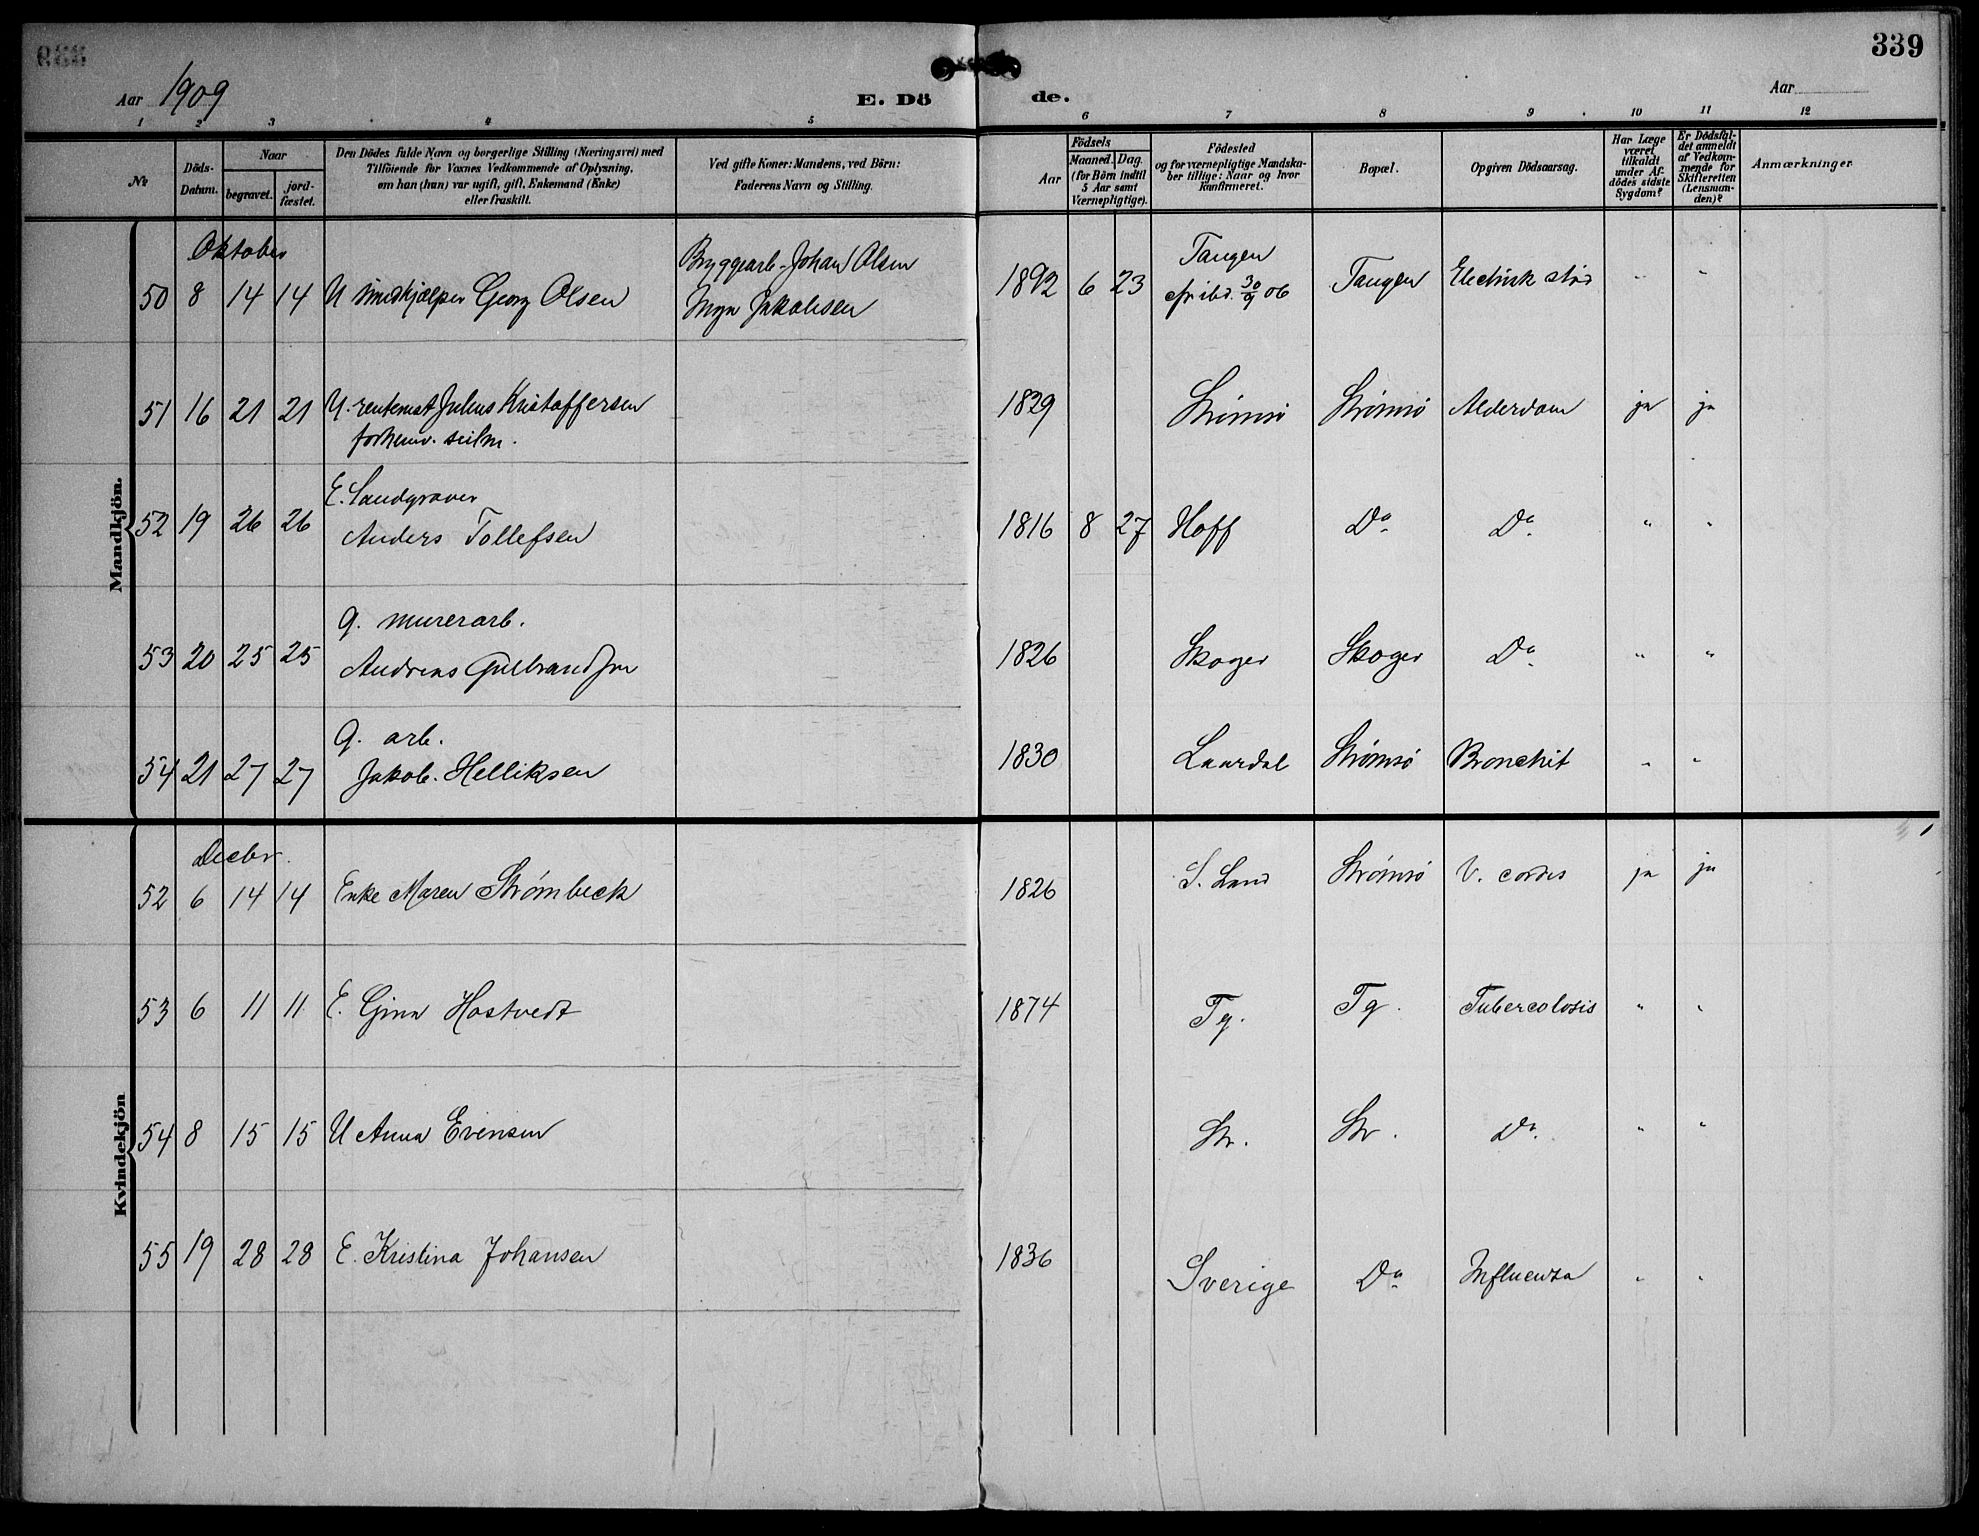 339
Aar 1909
E. Dö de.
Aar
1 2 3 4 5 6 7 8 9 10 11 12
№
Döds-Datum.
Naar
begravet.
jord-fæstet.
Den Dödes fulde Navn og borgerlige Stilling (Næringsvei) med
Tilföiende for Voxnes Vedkommende af Oplysning,
om han (hun) var ugift, gift, Enkemand (Enke)
eller fraskilt.
Ved gifte Koner: Mandens, ved Börn:
Faderens Navn og Stilling.
Aar
Födsels
Maaned. Dag.
(for Börn indtil
5 Aar samt
Værnepligtige).
Födested
og for værnepligtige Mandska-
ber tillige: Naar og hvor
Konfirmeret.
Bopæl.
Opgiven Dödsaarsag.
Har Læge
været
tilkaldt
under Af-
dödes sidste
Sygdom?
Er Dödsfal-
det anmeldt
af Vedkom-
mende for
Skifteretten
(Lensman-
den)?
Anmærkninger
Mandkjön.
Oktober
Bryggearb. Johan Olsen
Tangen
50 8 14 14 U smedhjælper Georg Olsen
Jakobsen 1892 6 23 30/9 06 Tangen Electrisk stød " "
51 16 21 21 U. rentenist Julius Kristoffersen 1829 Strömsö Strömsö Alderdom ja ja
forhenv. seilm.
E. Sandgraver
52 19 26 26 Anders Tollefsen 1816 8 27 Hoff Do Do " "
g. murerarb.
53 20 25 25 Andreas Gulbrandsen 1826 Skoger Skoger Do " "
g. arb.
54 21 27 27 Jakob Helliksen 1830 Laardal Strömsö Bronchit " "
Kvindekjön
Decbr.
52 6 14 14 Enke Maren Strømbeck 1826 S. Land Strömsö V. cordis ja ja
53 6 11 11 E. Gina Hostvedt 1874 Tg. Tg. Tubercolosis " "
54 8 15 15 U Anna Evensen Str. Str. Do " "
55 19 28 28 E. Kristina Johansen 1836 Sverige Do Influenza " "